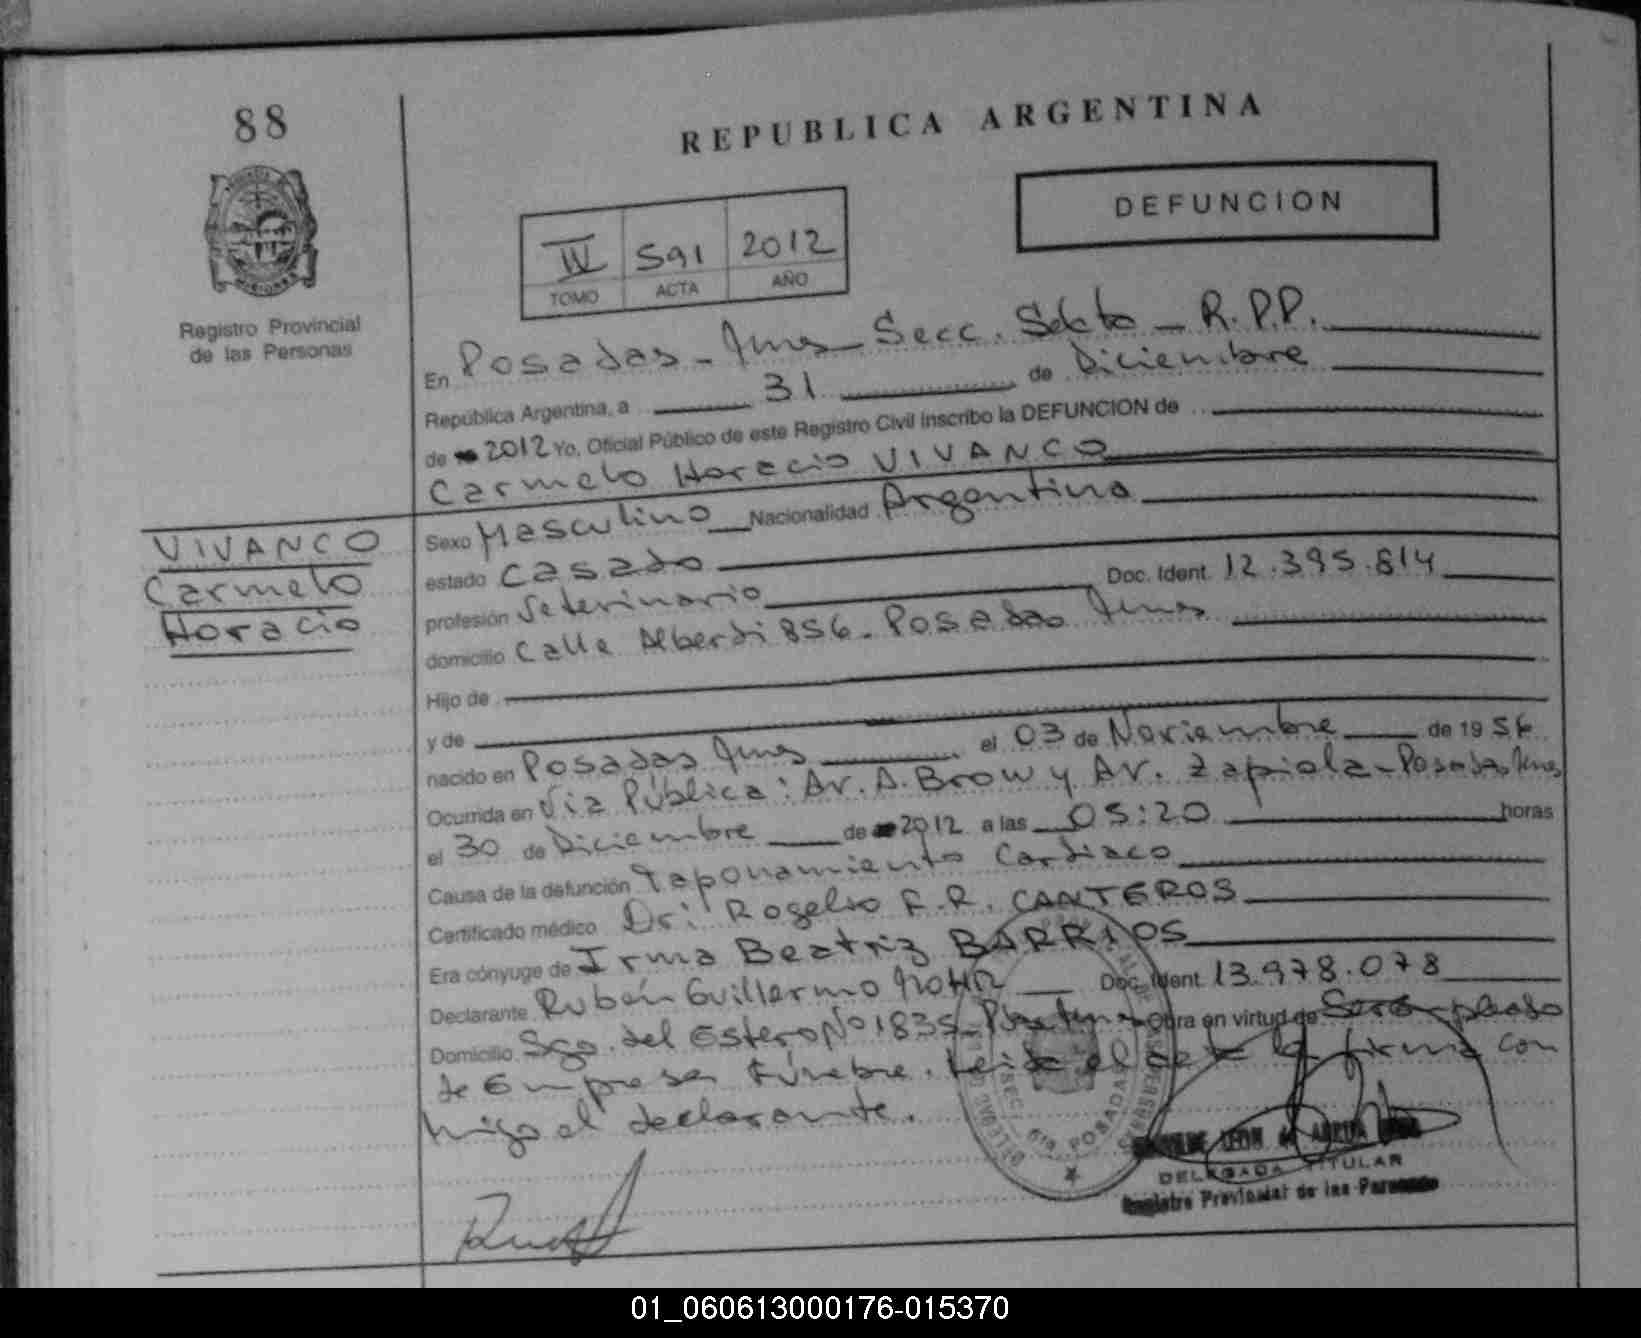 88
REPUBLICA ARGENTINA
DEFUNCION
IV 591 2012
TOMO ACTA AÑO
Registro Provincial
de las Personas
En Posadas - Mnes - Secc. Sexta - R.P.P.
República Argentina, a 31 de Diciembre
de 2012 Yo, Oficial Público de este Registro Civil inscribo la DEFUNCION de
Carmelo Horacio VIVANCO
VIVANCO
Carmelo
Horacio
Sexo Masculino Nacionalidad Argentina
estado Casado
profesión Veterinario Doc. Ident. 12.395.814
domicilio Calle Alberdi 856 - Posadas Mnes
Hijo de
y de
nacido en Posadas Mnes el 03 de Noviembre de 1956
Ocurrida en Vía Pública: Av. A. Brow y Av. Zapiola - Posadas Mnes
el 30 de Diciembre de 2012 a las 05:20 horas
Causa de la defunción Taponamiento Cardiaco
Certificado médico Dr: Rogelio F.R. CANTEROS
Era cónyuge de Irma Beatriz BARRIOS
Declarante Rubén Guillermo Doc. Ident. 13.978.078
Domicilio Sgo. del Estero Nº 1835 - obra en virtud de Ser Empleado
de Empresa Fúnebre. Leída el acta la firma con
migo el declarante.
SEC. 6ta POSADAS
DELEGADA TITULAR
Registro Provincial de las Personas
01_060613000176-015370